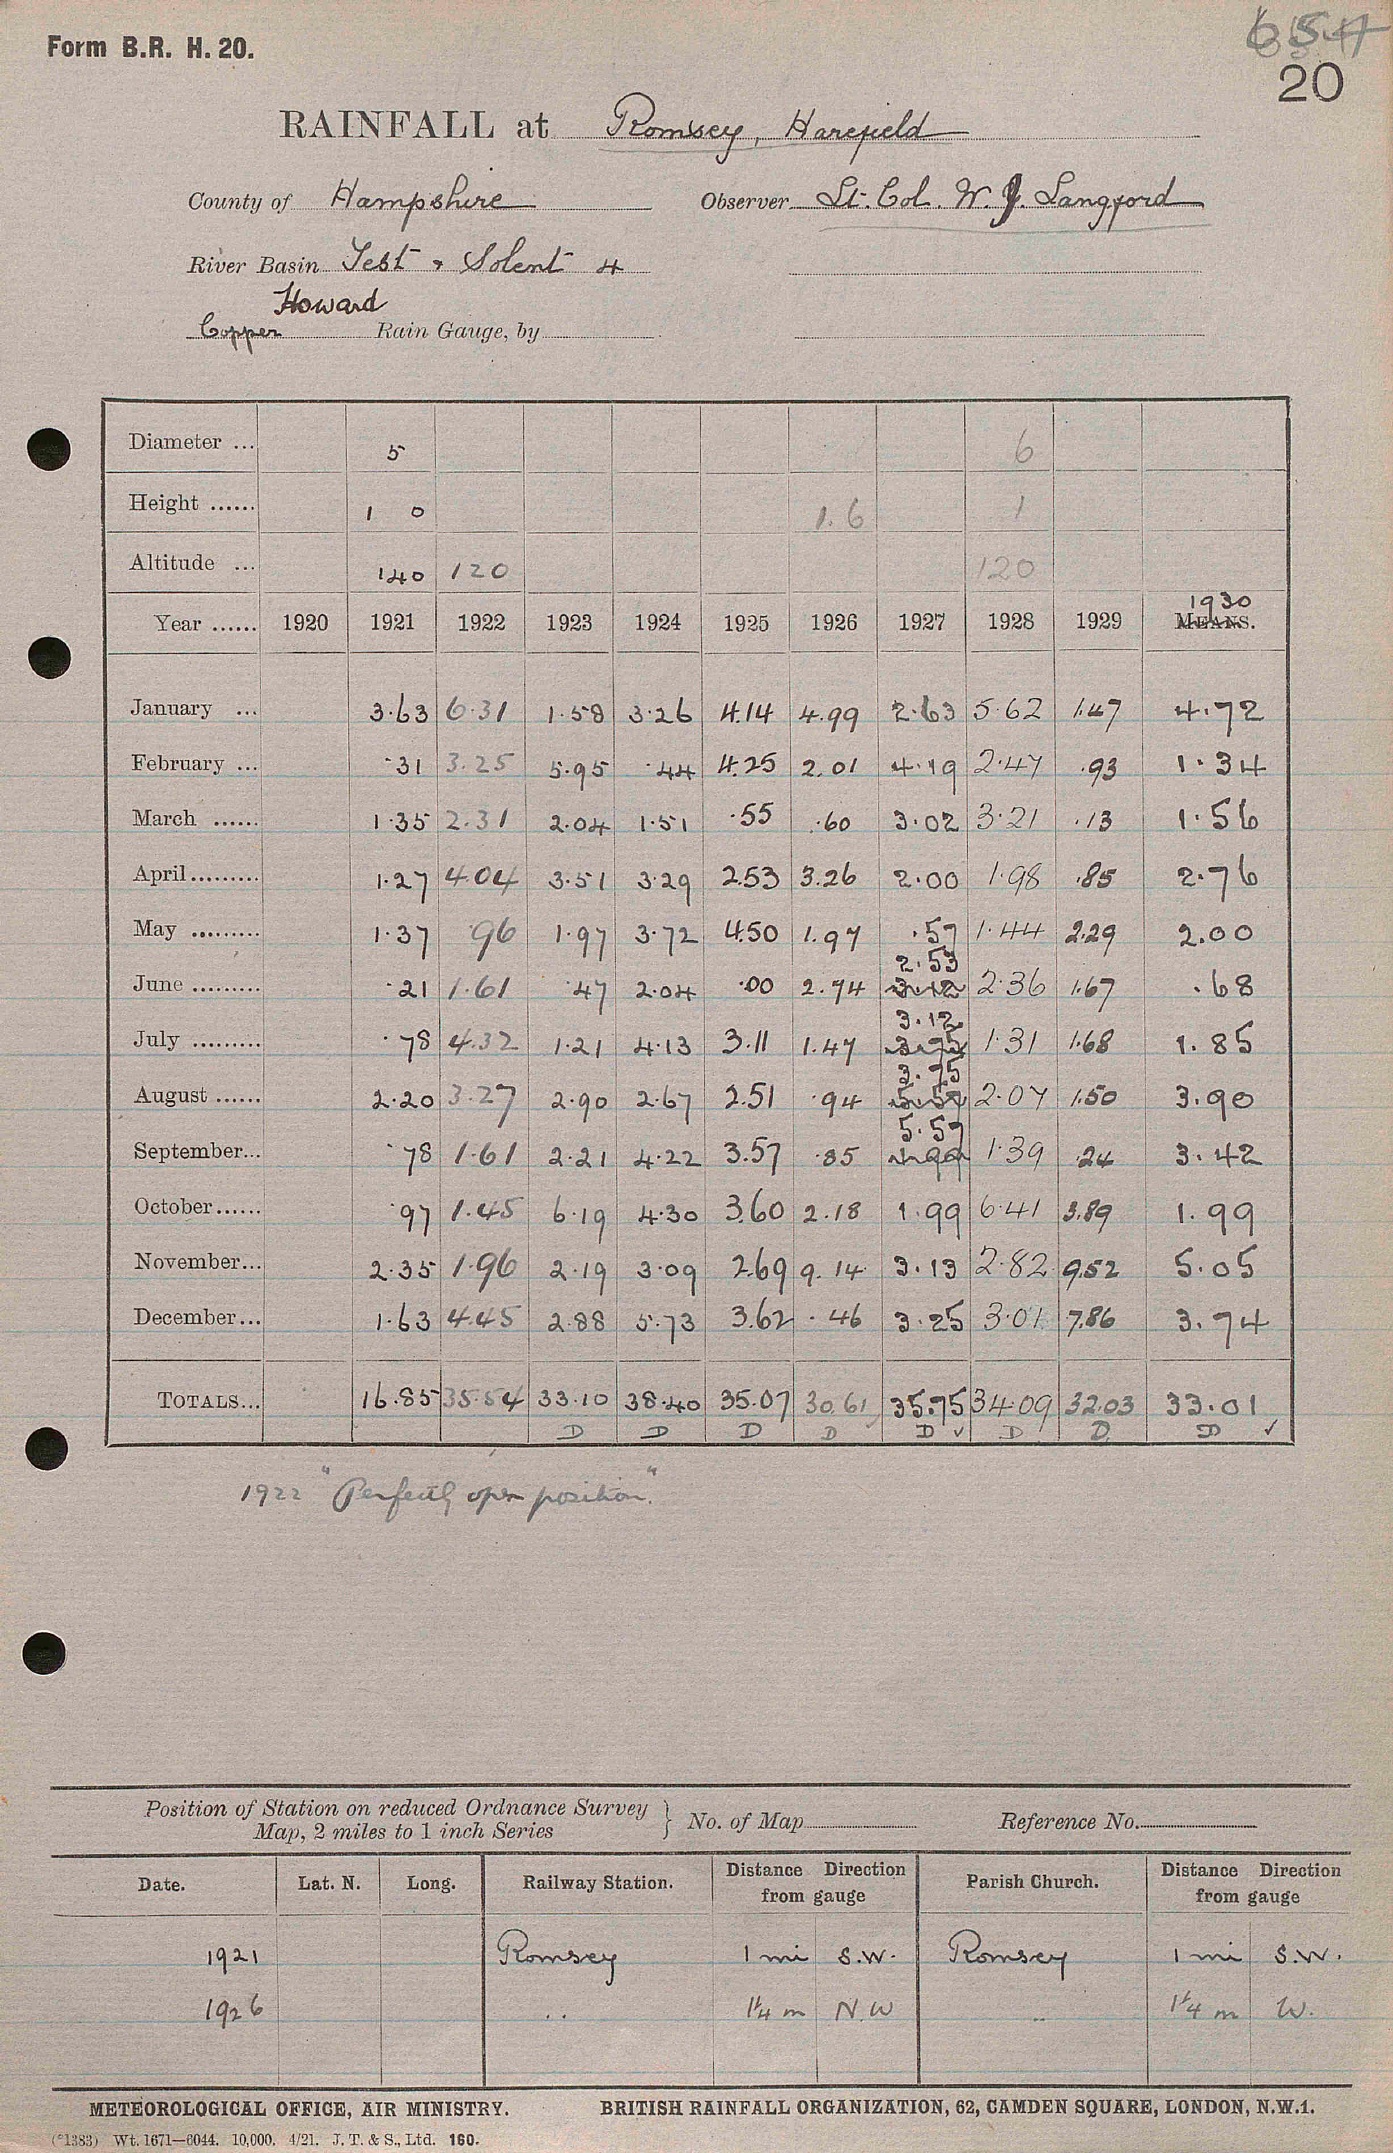 Form B.R. H. 20.
654
20
RAINFALL at Romsey, Harefield
County of Hampshire Observer Lt. Col. W. J. Langford
River Basin Test & Solent 4
Howard
Copper Rain Gauge, by
Diameter ... 5 6
Height ...... 1 0 1.6 1
Altitude ... 140 120 120
1930
Year ...... 1920 1921 1922 1923 1924 1925 1926 1927 1928 1929 MEANS.
January ... 3.63 6.31 1.58 3.26 4.14 4.99 2.63 5.62 1.47 4.72
February ... .31 3.25 5.95 .44 4.25 2.01 4.19 2.47 .93 1.34
March ...... 1.35 2.31 2.04 1.51 .55 .60 3.02 3.21 .13 1.56
April......... 1.27 4.04 3.51 3.29 2.53 3.26 2.00 1.98 .85 2.76
May ......... 1.37 96 1.97 3.72 4.50 1.97 .57 1.44 2.29 2.00
2.53
June ......... .21 1.61 .47 2.04 .00 2.74 3.12 2.36 1.67 .68
3.12
July ......... .78 4.32 1.21 4.13 3.11 1.47 3.75 1.31 1.68 1.85
3.75
August ...... 2.20 3.27 2.90 2.67 2.51 .94 5.57 2.07 1.50 3.90
5.57
September... .78 1.61 2.21 4.22 3.57 .85 1.99 1.39 .24 3.42
October...... .97 1.45 6.19 4.30 3.60 2.18 1.99 6.41 3.89 1.99
November... 2.35 1.96 2.19 3.09 2.69 9.14 3.13 2.82 9.52 5.05
December... 1.63 4.45 2.88 5.73 3.62 .46 3.25 3.01 7.86 3.74
TOTALS... 16.85 35.54 33.10 38.40 35.07 30.61 35.75 34.09 32.03 33.01
D D D D D ✓ D D D ✓
1922 "Perfectly open position."
Position of Station on reduced Ordnance Survey
Map, 2 miles to 1 inch Series } No. of Map Reference No.
Date. Lat. N. Long. Railway Station. Distance Direction from gauge Parish Church. Distance Direction from gauge
1921 Romsey 1 mi S.W. Romsey 1 mi S.W.
1926 .. 1¼ m N.W .. 1¼ m W.
METEOROLOGICAL OFFICE, AIR MINISTRY. BRITISH RAINFALL ORGANIZATION, 62, CAMDEN SQUARE, LONDON, N.W.1.
(*1383) Wt. 1671—6044. 10,000. 4/21. J. T. & S., Ltd. 160.